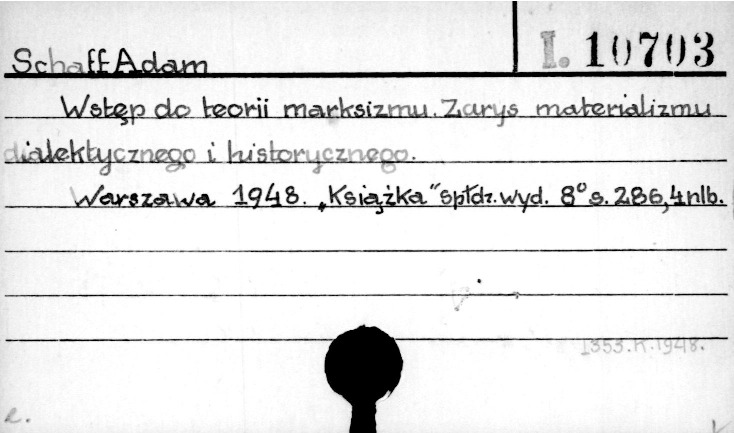 I. 10703
Schaff Adam
Wstęp do teorii marksizmu. Zarys materializmu
dialektycznego i historycznego.
Warszawa 1948. „Książka" spłdz. wyd. 8° s. 286, 4 nlb.
1353.K.1948.
e.